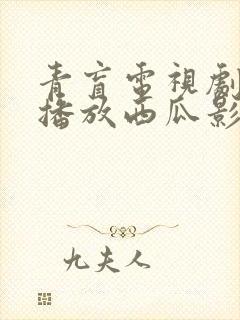 青盲電視劇
播放西瓜影
九夫人